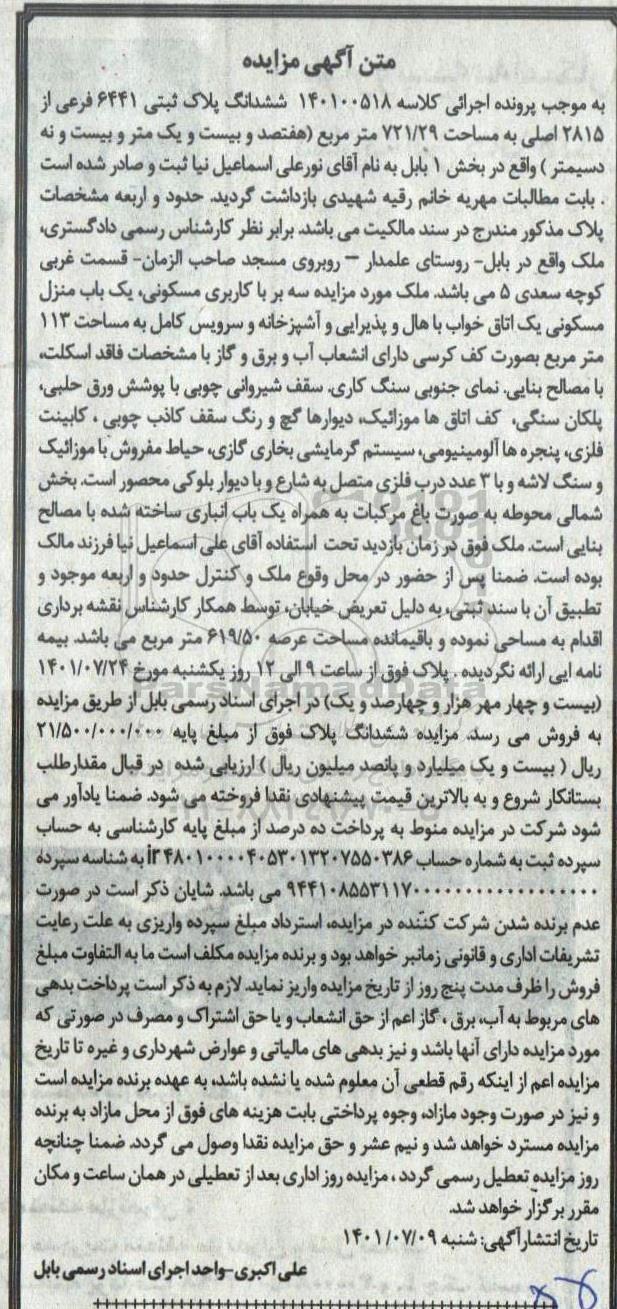 متن آگهی مزایده
به موجب پرونده اجرائی کلاسه ۱۴۰۱۰۰۵۱۸ ششدانگ پلاک ثبتی ۶۴۴۱ فرعی از
۲۸۱۵ اصلی به مساحت ۷۲۱/۲۹ متر مربع (هفتصد و بیست و یک متر و بیست و نه
دسیمتر ) واقع در بخش ۱ بابل به نام آقای نورعلی اسماعیل نیا ثبت و صادر شده است
. بابت مطالبات مهریه خانم رقیه شهیدی بازداشت گردید. حدود و اربعه مشخصات
پلاک مذکور مندرج در سند مالکیت می باشد. برابر نظر کارشناس رسمی دادگستری،
ملک واقع در بابل- روستای علمدار – روبروی مسجد صاحب الزمان- قسمت غربی
کوچه سعدی ۵ می باشد. ملک مورد مزایده سه بر با کاربری مسکونی، یک باب منزل
مسکونی یک اتاق خواب با هال و پذیرایی و آشپزخانه و سرویس کامل به مساحت ۱۱۳
متر مربع بصورت کف کرسی دارای انشعاب آب و برق و گاز با مشخصات فاقد اسکلت،
با مصالح بنایی. نمای جنوبی سنگ کاری. سقف شیروانی چوبی با پوشش ورق حلبی،
پلکان سنگی، کف اتاق ها موزائیک، دیوارها گچ و رنگ سقف کاذب چوبی ، کابینت
فلزی، پنجره ها آلومینیومی، سیستم گرمایشی بخاری گازی، حیاط مفروش با موزائیک
و سنگ لاشه و با ۳ عدد درب فلزی متصل به شارع و با دیوار بلوکی محصور است. بخش
شمالی محوطه به صورت باغ مرکبات به همراه یک باب انباری ساخته شده با مصالح
بنایی است. ملک فوق در زمان بازدید تحت استفاده آقای علی اسماعیل نیا فرزند مالک
بوده است. ضمنا پس از حضور در محل وقوع ملک و کنترل حدود و اربعه موجود و
تطبیق آن با سند ثبتی، به دلیل تعریض خیابان، توسط همکار کارشناس نقشه برداری
اقدام به مساحی نموده و باقیمانده مساحت عرصه ۶۱۹/۵۰ متر مربع می باشد. بیمه
نامه ایی ارائه نگردیده . پلاک فوق از ساعت ۹ الی ۱۲ روز یکشنبه مورخ ۱۴۰۱/۰۷/۲۴
(بیست و چهار مهر هزار و چهارصد و یک) در اجرای اسناد رسمی بابل از طریق مزایده
به فروش می رسد. مزایده ششدانگ پلاک فوق از مبلغ پایه ۲۱/۵۰۰/۰۰۰/۰۰۰
ریال ( بیست و یک میلیارد و پانصد میلیون ریال ) ارزیابی شده در قبال مقدارطلب
بستانکار شروع و به بالاترین قیمت پیشنهادی نقدا فروخته می شود. ضمنا یادآور می
شود شرکت در مزایده منوط به پرداخت ده درصد از مبلغ پایه کارشناسی به حساب
سپرده ثبت به شماره حساب ir ۴۸۰۱۰۰۰۰۴۰۵۳۰۱۳۲۰۷۵۵۰۳۸۶ به شناسه سپرده
۹۴۴۱۰۸۵۵۳۱۱۷۰۰۰۰۰۰۰۰۰۰۰۰۰۰۰۰۰۰ می باشد. شایان ذکر است در صورت
عدم برنده شدن شرکت کننده در مزایده، استرداد مبلغ سپرده واریزی به علت رعایت
تشریفات اداری و قانونی زمانبر خواهد بود و برنده مزایده مکلف است ما به التفاوت مبلغ
فروش را ظرف مدت پنج روز از تاریخ مزایده واریز نماید. لازم به ذکر است پرداخت بدهی
های مربوط به آب، برق ، گاز اعم از حق انشعاب و یا حق اشتراک و مصرف در صورتی که
مورد مزایده دارای آنها باشد و نیز بدهی های مالیاتی و عوارض شهرداری و غیره تا تاریخ
مزایده اعم از اینکه رقم قطعی آن معلوم شده یا نشده باشد، به عهده برنده مزایده است
و نیز در صورت وجود مازاد، وجوه پرداختی بابت هزینه های فوق از محل مازاد به برنده
مزایده مسترد خواهد شد و نیم عشر و حق مزایده نقدا وصول می گردد. ضمنا چنانچه
روز مزایده تعطیل رسمی گردد ، مزایده روز اداری بعد از تعطیلی در همان ساعت و مکان
مقرر برگزار خواهد شد.
تاریخ انتشارآگهی: شنبه ۱۴۰۱/۰۷/۰۹
علی اکبری-واحد اجرای اسناد رسمی بابل
ParsNamadData